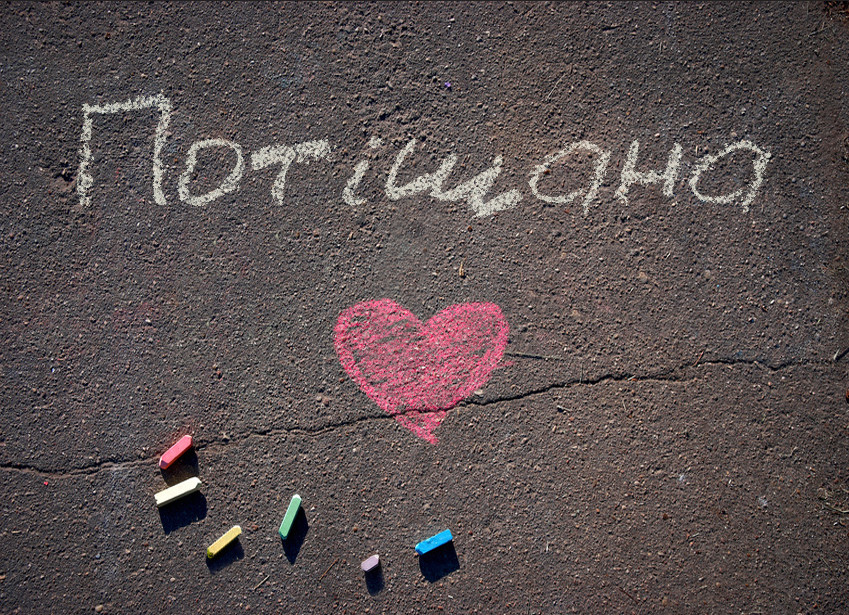 Потішана